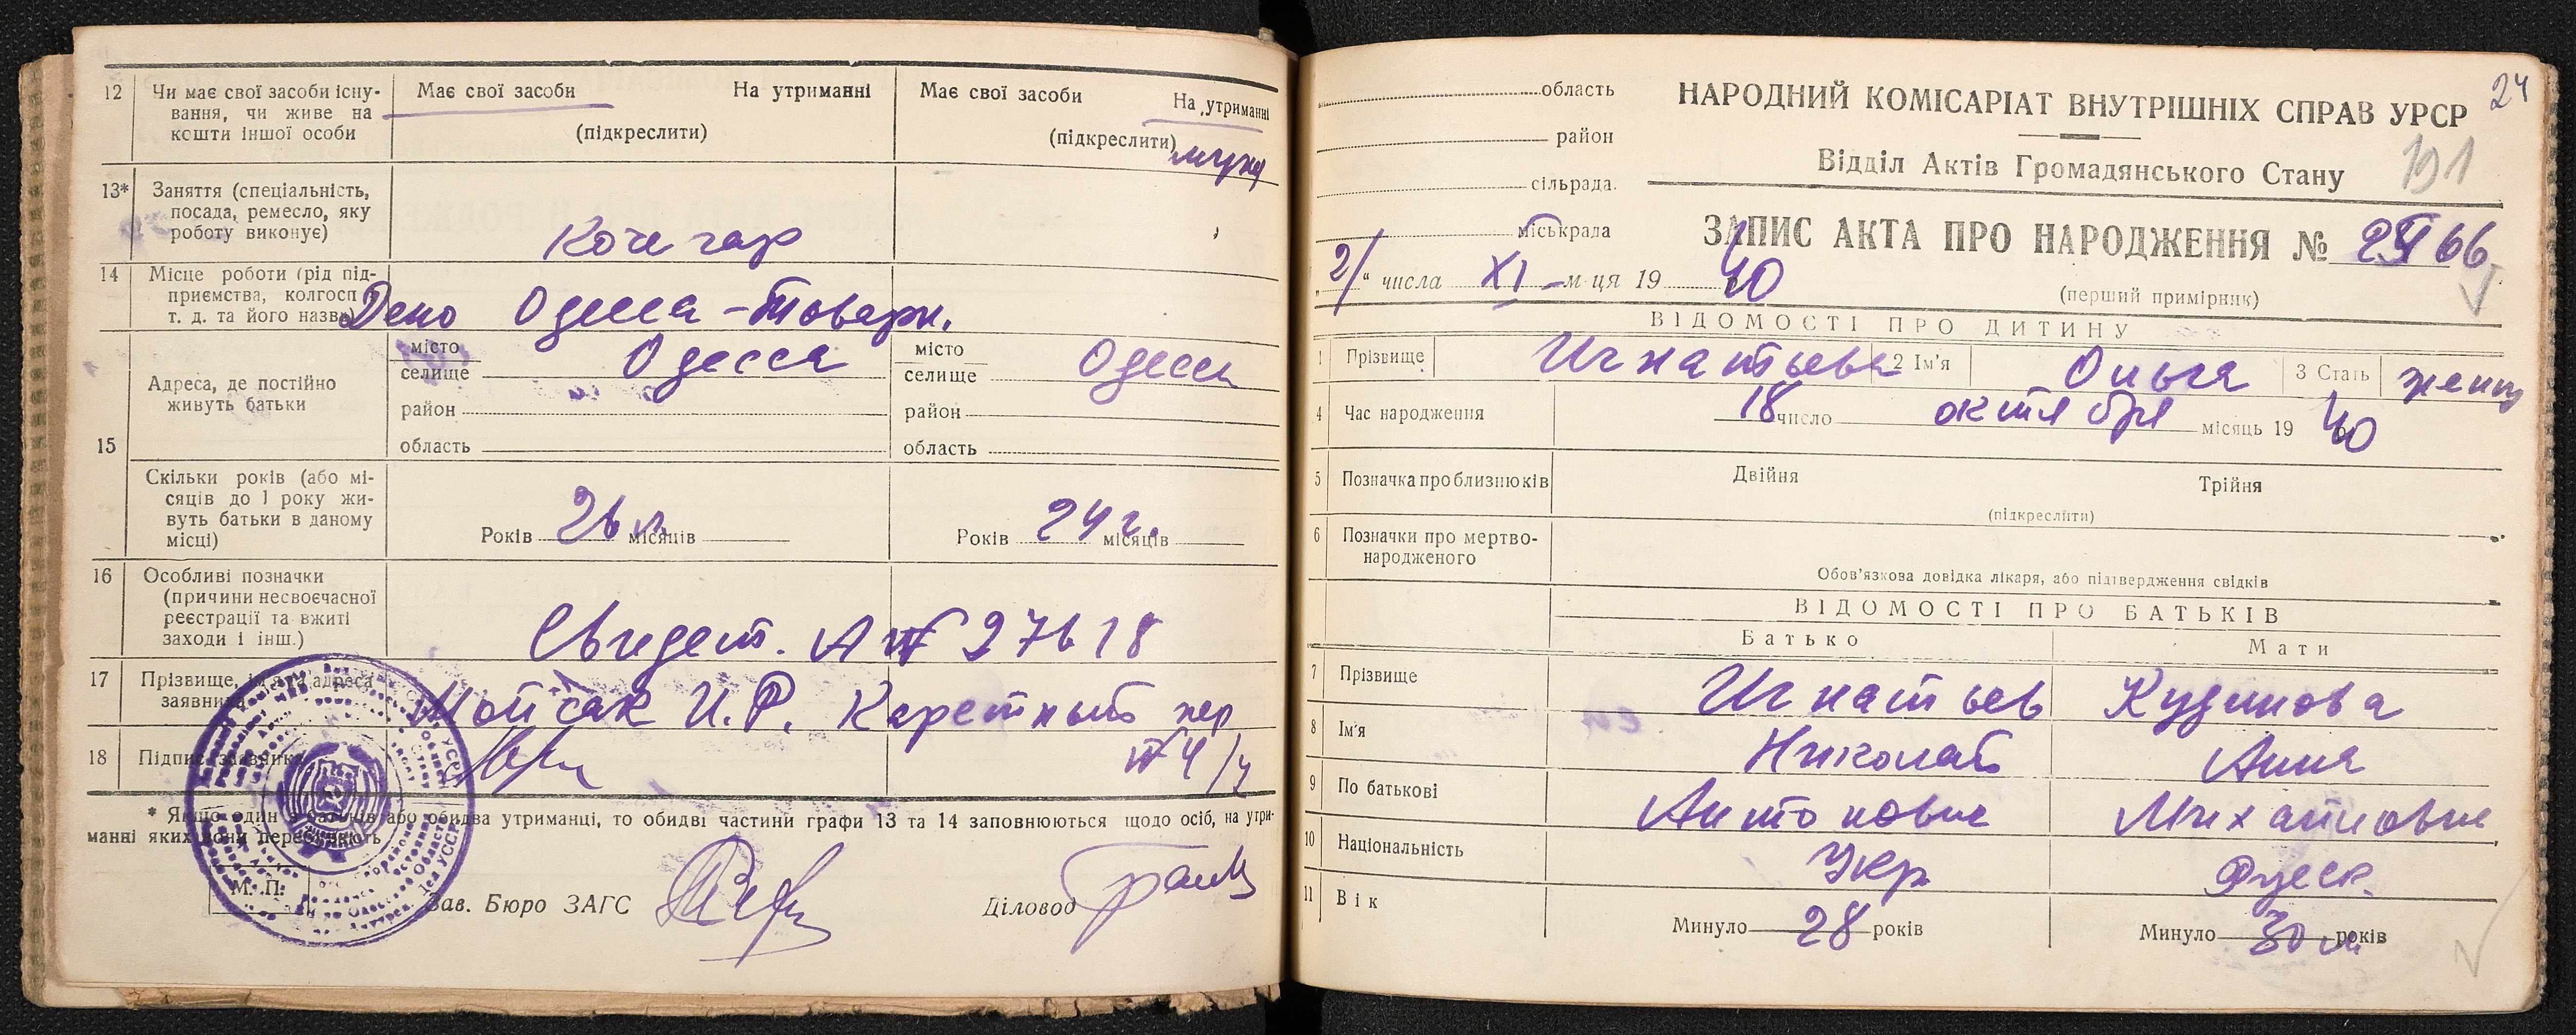 12 Чи має свої засоби існу-
вання, чи живе на
кошти іншої особи
Має свої засоби На утриманні
(підкреслити)
Має свої засоби На утриманні
(підкреслити)
мужа
13* Заняття (спеціальність,
посада, ремесло, яку
роботу виконує)
Кочегар
14 Місце роботи (рід під-
приємства, колгосп
т. д. та його назва)
Депо Одесса-Товарн.
15
Адреса, де постійно
живуть батьки
місто
селище
Одесса
район
область
місто
селище
Одесса
район
область
Скільки років (або мі-
сяців до 1 року жи-
вуть батьки в даному
місці)
Років 26 л. місяців
Років 24 г. місяців
16 Особливі позначки
(причини несвоєчасної
реєстрації та вжиті
заходи і інш.)
Свидет. А № 27618
17 Прізвище, ім'я та адреса
заявника
И.Р. Каретный пер
№ 4/4
18 Підпис заявника
* Якщо один з батьків або обидва утриманці, то обидві частини графи 13 та 14 заповнюються щодо осіб, на утри-
манні яких вони перебувають
М. П.
Зав. Бюро ЗАГС
Діловод
24
область
район
сільрада
міськрада
НАРОДНИЙ КОМІСАРІАТ ВНУТРІШНІХ СПРАВ УРСР
191
Відділ Актів Громадянського Стану
ЗАПИС АКТА ПРО НАРОДЖЕННЯ №
"2/" числа XI м-ця 1940
(перший примірник)
ВІДОМОСТІ ПРО ДИТИНУ
1 Прізвище Игнатьева 2 Ім'я Ольга 3 Стать женщ
4 Час народження 18 число октября місяць 1940
5 Позначка про близнюків Двійня Трійня
(підкреслити)
6 Позначки про мертво-
народженого
Обов'язкова довідка лікаря, або підтвердження свідків
ВІДОМОСТІ ПРО БАТЬКІВ
Батько Мати
7 Прізвище Игнатьев Кудинова
8 Ім'я Николай Анна
9 По батькові Антонович Михайловна
10 Національність Укр Русск.
11 Вік Минуло 28 років Минуло 30 л. років